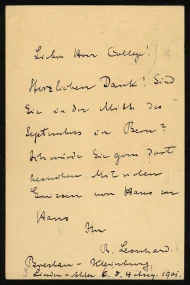 Lieber Herr College!
Herzlichen Dank! Sind
Sie in der Mitte des
Septembers in Bern?
Ich würde Sie gern dort
besuchen. Mit vielen
Grüssen von Haus zu
Haus
Ihr
R. Leonhard.
Breslau - Kleinburg,
Linden-Allee 6. d. 4 Aug. 1901.